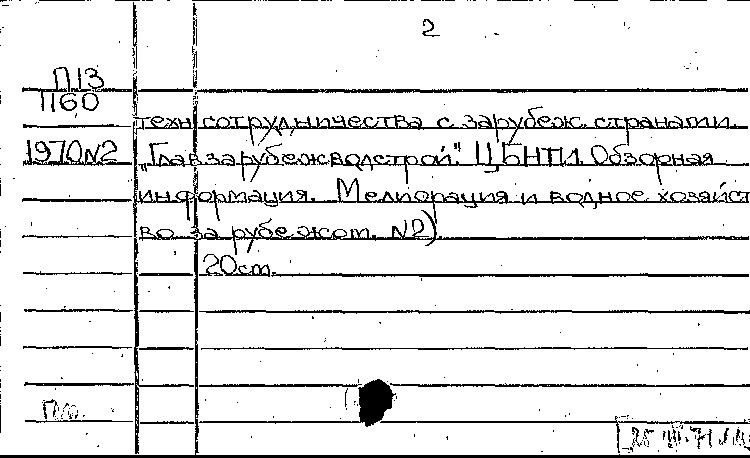 2
П13
1160
техн сотрудничества с зарубеж. странами.
1970 N2 "Главзарубежводстрой." ЦБНТИ. Обзорная
информация. Мелиорация и водное хозяйст
во за рубежом. N2).
20см.